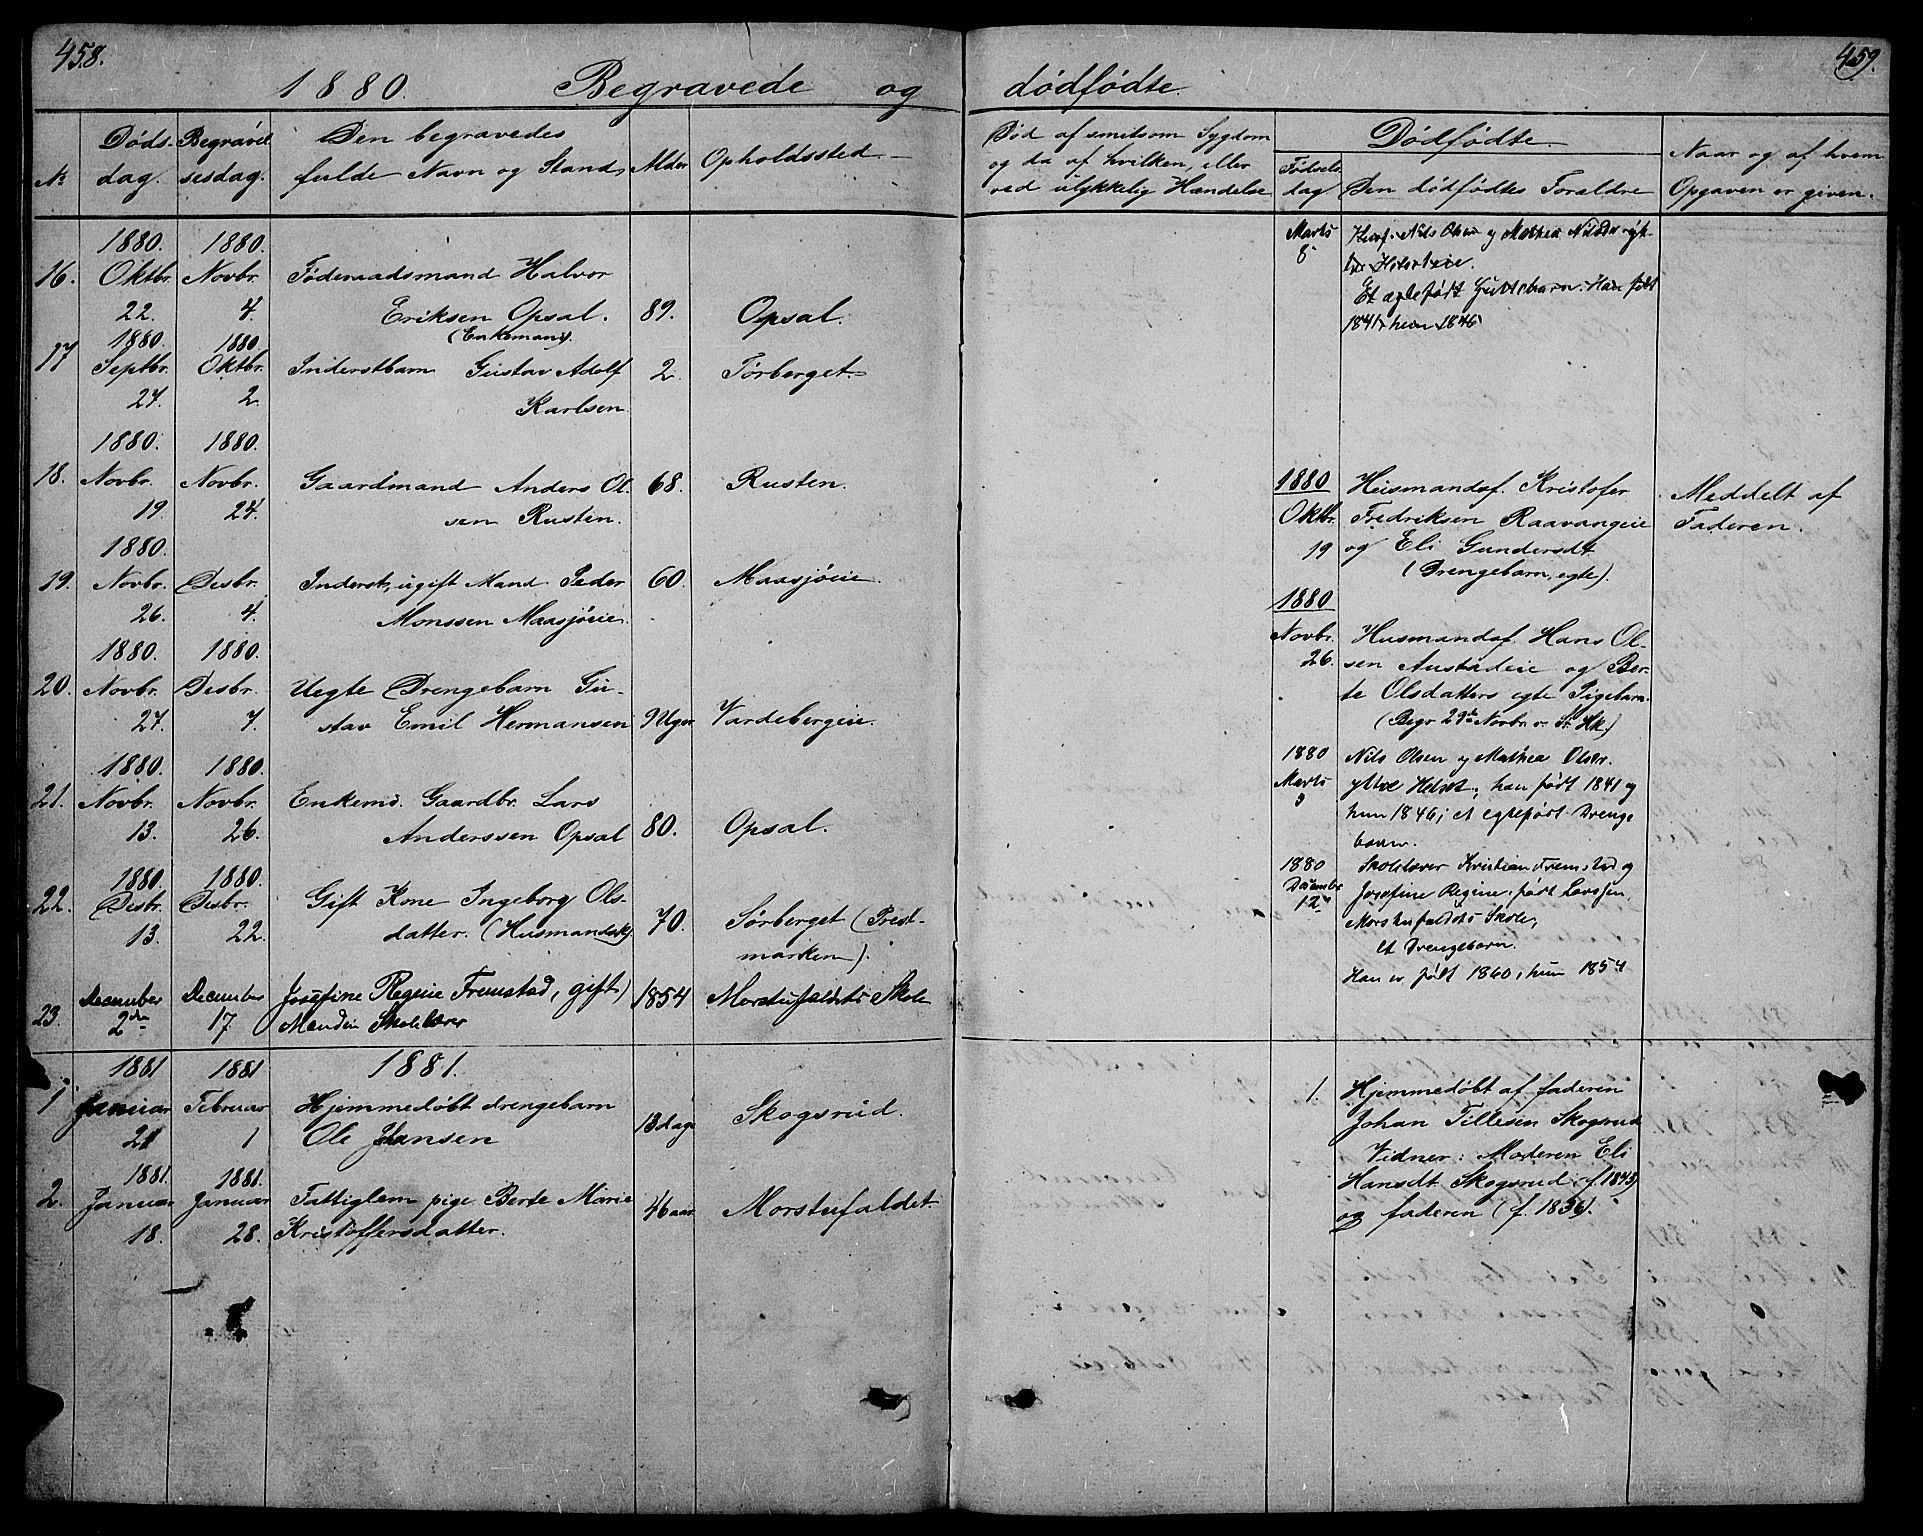 458.
1880. Begravede og
No
Døds-
dag.
Begravel-
sesdag.
Den begravedes
fulde Navn og Stand
Alder
Opholdssted.
16.
1880.
Oktbr.
22.
1880.
Novbr.
4.
Føderaadsmand Halvor
Eriksen Opsal.
(Enkemand).
89.
Opsal.
17
1880.
Septbr.
24.
1880.
Oktbr.
2.
Inderstbarn Gustav Adolf
Karlsen
2.
Førberget.
18.
1880.
Novbr.
19.
1880.
Novbr.
24.
Gaardmand Anders Ol-
sen Rusten.
68.
Rusten.
19.
1880.
Novbr.
26.
Desbr.
4.
Inderst, ugift Mand Peder
Monssen Maasjøeie.
60.
Maasjøeie.
20.
1880.
Novbr.
27.
1880.
Desbr.
7.
Uegte Drengebarn Gu-
stav Emil Hermansen
9 Uger
Vardebergeie.
21.
1880.
Novbr.
13.
1880.
Novbr.
26.
Enkemd. Gaardbr. Lars
Anderssen Opsal
80.
Opsal.
22.
1880.
Desbr.
13.
1880.
Desbr.
22.
Gift Kone Ingeborg Ols-
datter. (Husmandsk).
70.
Sørberget (Prest-
marken).
23.
December
2den
December
17
Josefine Regine Fremstad, gift,
Manden Skolelærer
1854
Morstufaldets Skole
1881.
1
1881
Januar
21
1881
Februar
1
Hjemmedøbt drengebarn
Ole Jhansen
13 dage
Skogsrud.
2.
1881.
Januar
18.
1881.
Januar
28.
Fattiglem pige Berte Marie
Kristoffersdatter.
46 aar.
Morstufaldet.
459.
dødfødte.
Død af smitsom Sygdom
og da af hvilken, eller
ved ulykkelig Hændelse
Dødfødte.
Fødsels-
dag
Den dødfødtes Forældre
Naar og af hvem
Opgaven er given.
Marts
Nils Olsen og Mathea
Et ægtefødt Guttebarn. Han født
1841, hun 1846
1880
Oktbr.
19
Husmandsf. Kristofer
Fredriksen Raavangeie
og Eli Gundersdt.
(Drengebarn, egte).
Meddelt af
Faderen.
1880
Novbr.
26.
Husmandsf. Hans Ol-
sen Austadeie og Ber-
te Olsdatters egte Pigebarn.
(Begr. 29de Novbr. v. St. Hk.)
1880
Marts
Nils Olsen og Mathea Olsdr.
han født 1841 og
hun 1846; et egtefødt Drenge
barn.
1880
December
12
Skolelærer Kristian Fremstad og
Josefine Regine, født Larssen,
Morstufaldets Skole,
et Drengebarn.
Han er født 1860, hun 1854
1.
Hjemmedøbt af faderen
Johan Tillesen Skogsrud
Vidner: Moderen Eli
Hansdt Skogsrud (f. 1843)
og faderen (f. 1836).